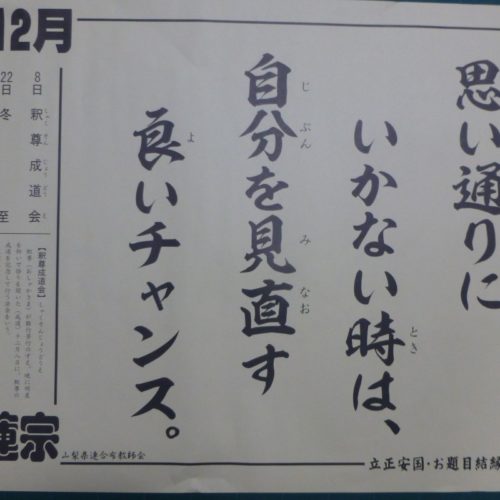 思い通りに
いかない時は、
自分を見直す
良いチャンス。
12月
8日 釈尊成道会
22日 冬至
【釈尊成道会】しゃくそんじょうどうえ
蓮宗
山梨県連合布教師会
立正安国・お題目結縁